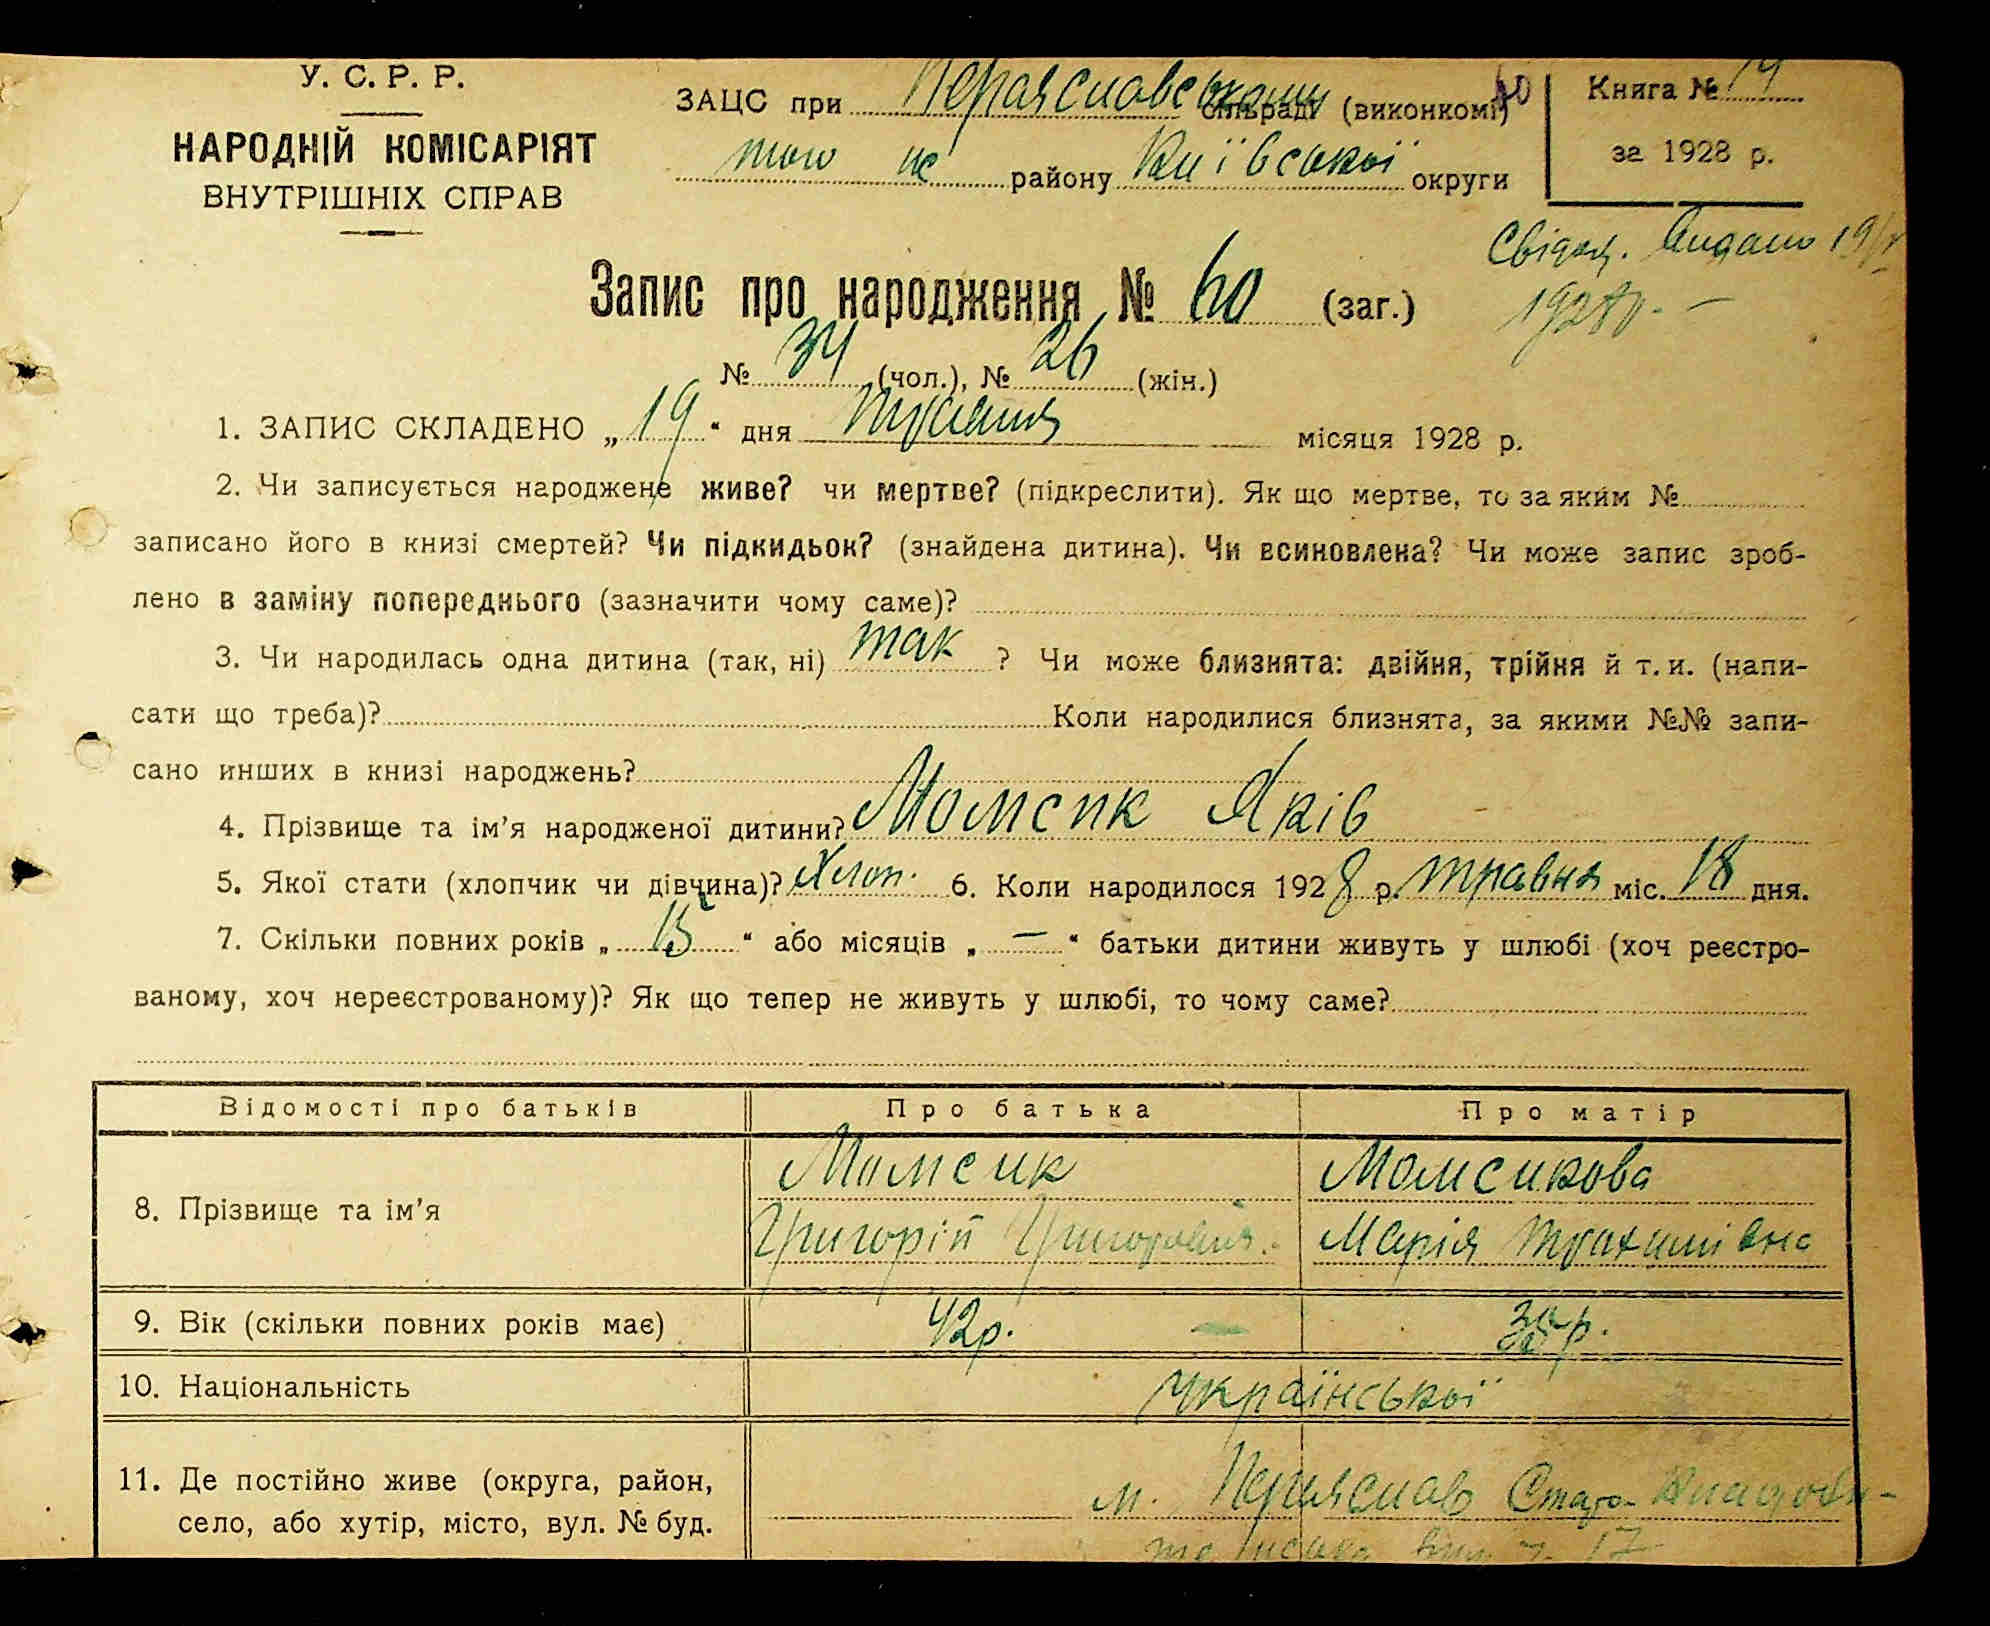 У. С. Р. Р.
НАРОДНІЙ КОМІСАРІЯТ
ВНУТРІШНІХ СПРАВ
ЗАЦС при Переяславському сільраді (виконкомі)
того ж району Київської округи
Книга № 14
за 1928 р.
Свідоц. видано 19/V
1928 р. –
Запис про народження № 60 (заг.)
№ 34 (чол.), № 26 (жін.)
1. ЗАПИС СКЛАДЕНО „19“ дня травня місяця 1928 р.
2. Чи записується народжене живе? чи мертве? (підкреслити). Як що мертве, то за яким №
записано його в книзі смертей? Чи підкидьок? (знайдена дитина). Чи всиновлена? Чи може запис зроб-
лено в заміну попереднього (зазначити чому саме)?
3. Чи народилась одна дитина (так, ні) так ? Чи може близнята: двійня, трійня й т. и. (напи-
сати що треба)? Коли народилися близнята, за якими №№ запи-
сано инших в книзі народжень?
4. Прізвище та ім’я народженої дитини? Момсик Яків
5. Якої стати (хлопчик чи дівчина)? Хлоп. 6. Коли народилося 1928 р. травня міс. 18 дня.
7. Скільки повних років „15“ або місяців „—“ батьки дитини живуть у шлюбі (хоч реєстро-
ваному, хоч нереєстрованому)? Як що тепер не живуть у шлюбі, то чому саме?
Відомості про батьків Про батька Про матір
8. Прізвище та ім’я Момсик Момсикова
Григорій Григорович. Марія Трохимівна
9. Вік (скільки повних років має) 42 р. — р.
10. Національність української
11. Де постійно живе (округа, район,
село, або хутір, місто, вул. № буд.
м. Переяслав Старо-
17